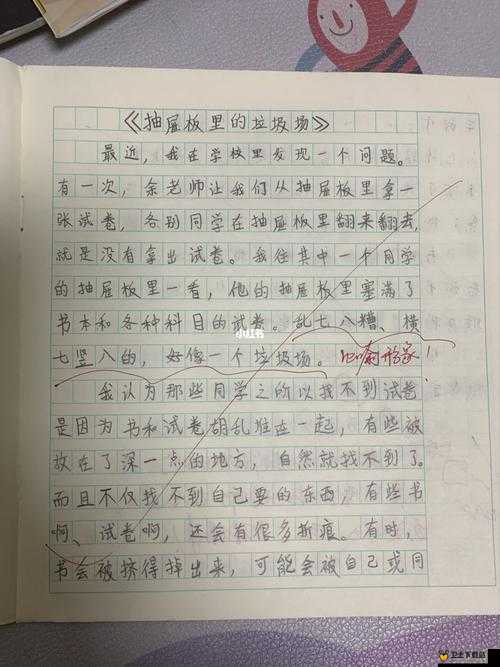 《抽屉板里的垃圾场》
最近，我在学校里发现一个问题。
有一次，余老师让我们从抽屉板里拿一
张试卷，各别同学在抽屉板里翻来翻去，
就是没有拿出试卷。我往其中一个同学
的抽屉板里一看，他的抽屉板里塞满了
书本和各种科目的试卷。乱七八糟、横
七竖八的，好像一个垃圾场。比喻形象
我认为那些同学之所以找不到试卷
是因为书和试卷胡乱堆在一起，有些被
放在了深一点的地方，自然就找不到了。
而且不仅找不到自己要的东西，有些书
啊、试卷啊，还会有很多折痕。有时，
书会被挤得掉出来，可能会被自己或同
小红书
卫士下载站